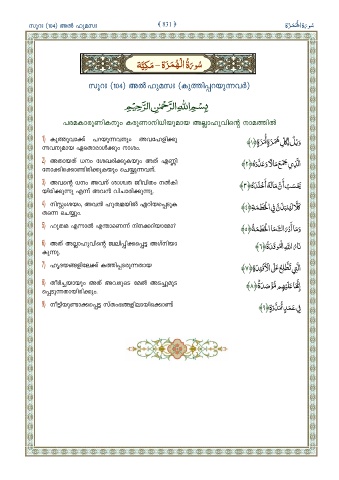 സൂറഃ (104) അൽ ഹുമസഃ
﴿ 831 ﴾
سُورَةُ الْهُمَزَة
سُورَةُ الْهُمَزَة - مَكِّيَّة
സൂറഃ (104) അൽ ഹുമസഃ (കുത്തിപ്പറയുന്നവർ)
بِسْمِ اللَّهِ الرَّحْمَٰنِ الرَّحِيمِ
പരമകാരുണികനും കരുണാനിധിയുമായ അല്ലാഹുവിന്റെ നാമത്തിൽ
1) കുത്തുവാക്ക് പറയുന്നവനും അവഹേളിക്കു
ന്നവനുമായ ഏതൊരാൾക്കും നാശം.
وَيْلٌ لِكُلِّ هُمَزَةٍ لُمَزَةٍ ﴿١﴾
2) അതായത് ധനം ശേഖരിക്കുകയും അത് എണ്ണി
നോക്കിക്കൊണ്ടിരിക്കുകയും ചെയ്യുന്നവന്.
الَّذِي جَمَعَ مَالًا وَعَدَّدَهُ ﴿٢﴾
3) അവന്റെ ധനം അവന് ശാശ്വത ജീവിതം നൽകി
യിരിക്കുന്നു എന്ന് അവൻ വിചാരിക്കുന്നു.
يَحْسَبُ أَنَّ مَالَهُ أَخْلَدَهُ ﴿٣﴾
4) നിസ്സംശയം, അവൻ ഹുത്വമയിൽ എറിയപ്പെടുക
തന്നെ ചെയ്യും.
كَلَّا لَيُنْبَذَنَّ فِي الْحُطَمَةِ ﴿٤﴾
5) ഹുത്വമ എന്നാൽ എന്താണെന്ന് നിനക്കറിയാമോ?
وَمَا أَدْرَاكَ مَا الْحُطَمَةُ ﴿٥﴾
6) അത് അല്ലാഹുവിന്റെ ജ്വലിപ്പിക്കപ്പെട്ട അഗ്നിയാ
കുന്നു.
نَارُ اللَّهِ الْمُوقَدَةُ ﴿٦﴾
7) ഹൃദയങ്ങളിലേക്ക് കത്തിപ്പടരുന്നതായ
الَّتِي تَطَّلِعُ عَلَى الْأَفْئِدَةِ ﴿٧﴾
8) തീർച്ചയായും അത് അവരുടെ മേൽ അടച്ചുമൂട
പ്പെടുന്നതായിരിക്കും.
إِنَّهَا عَلَيْهِمْ مُؤْصَدَةٌ ﴿٨﴾
9) നീട്ടിയുണ്ടാക്കപ്പെട്ട സ്തംഭങ്ങളിലായിക്കൊണ്ട്
فِي عَمَدٍ مُمَدَّدَةٍ ﴿٩﴾